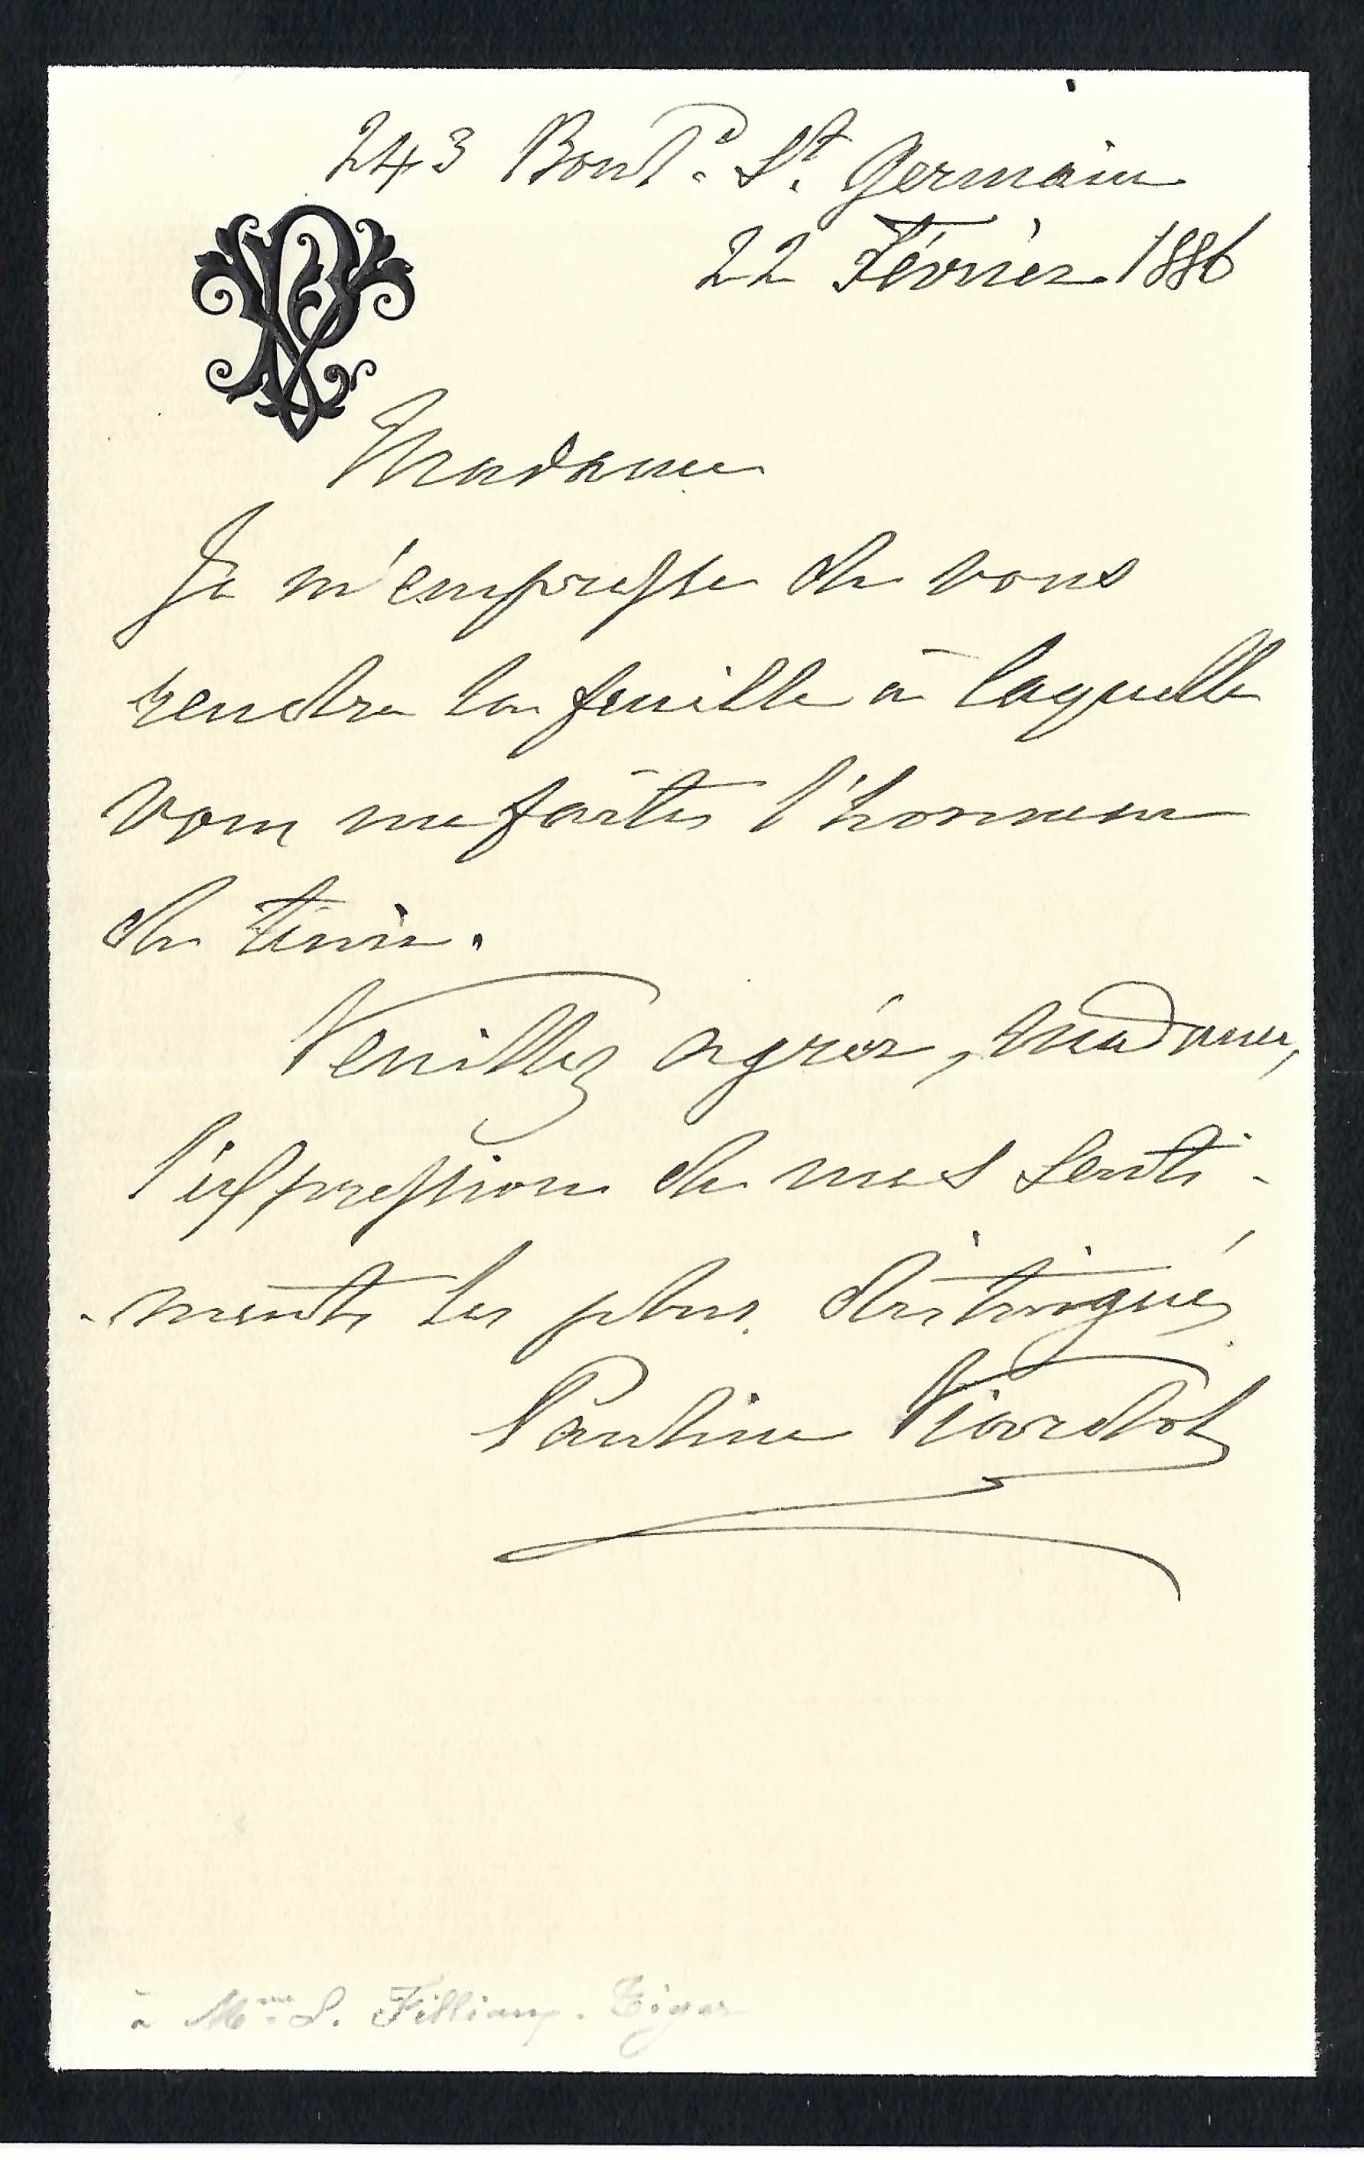 243 Boul.d St. Germain
22 Février 1886
VP
Madame
Je m'empresse de vous
rendre la feuille à laquelle
vous me faites l'honneur
de tenir.
Veuillez agréer, Madame,
l'expression de mes senti-
-ments les plus distingués
Pauline Viardot
à Mme. L. Filliaux-Tiger